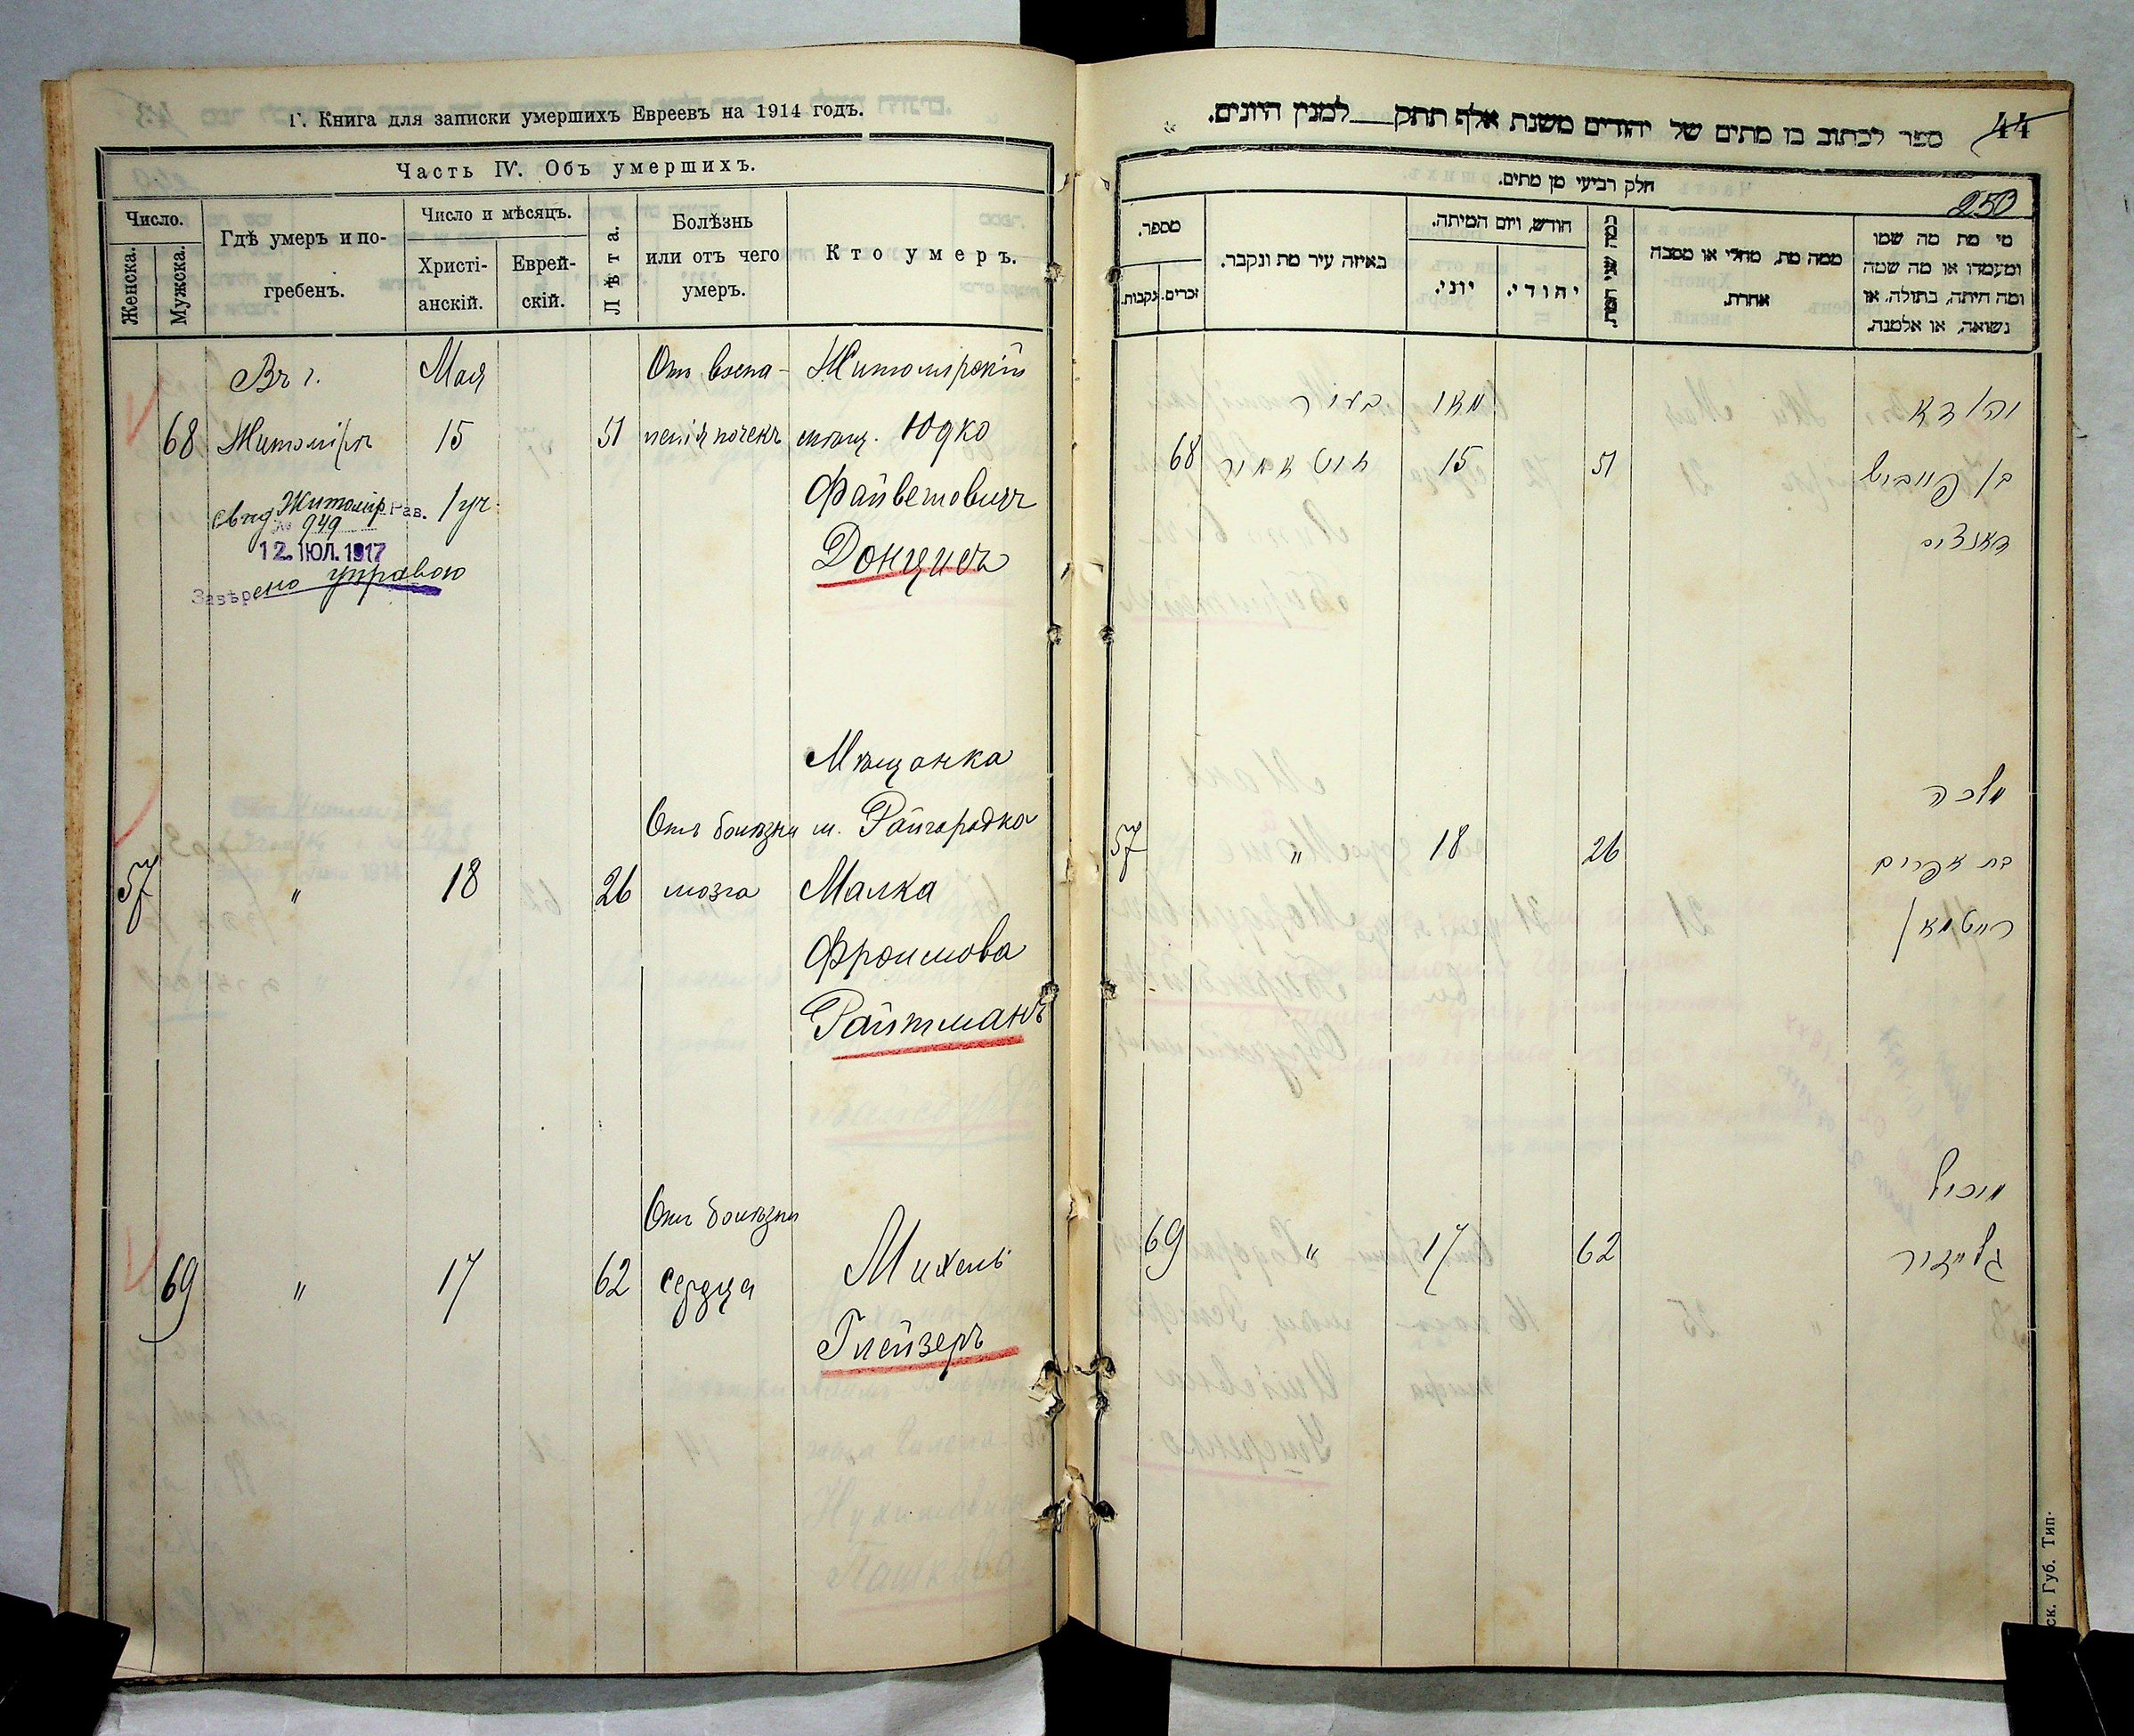 Г. Книга для записки умершихъ Евреевъ на 1914 годъ.
Часть IV. Объ умершихъ.
Число.
Женска.
Мужска.
Гдѣ умеръ и по-
гребенъ.
Число и мѣсяцъ.
Христі-
анскій.
Еврей-
скій.
Лѣта.
Болѣзнь
или отъ чего
умеръ.
Кто умеръ.
Въ г. Мая Отъ воспа- Житомірскій
68 Житомірѣ 15 51 ленія почекъ мѣщ. Юдко
Файвешовичъ
Донцисъ
Житомір. Рав. 1 уч.
№ 949
12. ІЮЛ. 1917
управою
Мѣщанка
Отъ болѣзни м. Райгородка
57 " 18 26 мозга Малка
Фроимова
Райтманъ
Отъ болѣзни
69 " 17 62 сердца Михель
Глейзеръ
ספר לכתוב בו מתים של יהודים משנת אלף תתק למנין היונים.
44
250
חלק רביעי מן מתים.
מספר.
נקבות.
זכרים.
באיזה עיר מת ונקבר.
חודש, ויום המיתה.
יוני.
יהודי.
כמה שני המת.
ממה מת, מחלי או מסבה
אחרת.
מי מת מה שמו
ומעמדו או מה שמה
ומה היתה, בתולה, או
נשואה, או אלמנה.
בעיר מאי
68 זיטאמיר 15 51 בן פייביש
דאנציס
מלכה
57 " 18 26 בת אפרים
רייטמאן
מיכל
69 " 17 62 גלייזער
ск. Губ. Тип.